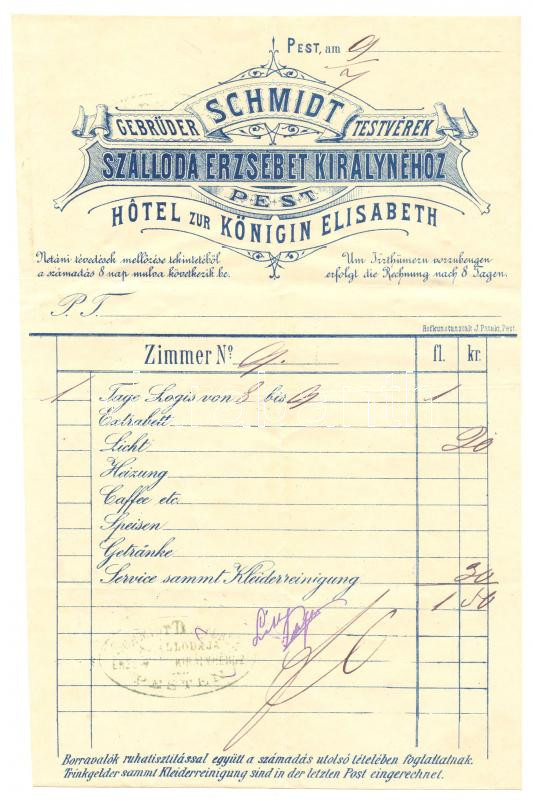 Pest, am 9/4
GEBRÜDER SCHMIDT TESTVÉREK
SZÁLLODA ERZSEBET KIRÁLYNÉHÖZ
PEST
HÔTEL ZUR KÖNIGIN ELISABETH
Netáni tévedések mellőzése tekintetéből
a számadás 8 nap mulva következik be.
Um Irrthümern vorzubeugen
erfolgt die Rechnung nach 8 Tagen.
P. T.
Hofkunstanstalt J. Pataki, Pest.
Zimmer Nº 9. fl. kr.
1 Tage Logis von 8 bis 9 1
Extrabett
Licht 20
Heizung
Caffee etc.
Speisen
Getränke
Service sammt Kleiderreinigung 30
1 50
SZÁLLODÁJA
PESTEN
Borravalók ruhatisztitással együtt a számadás utolsó tételében foglaltatnak.
Trinkgelder sammt Kleiderreinigung sind in der letzten Post eingerechnet.